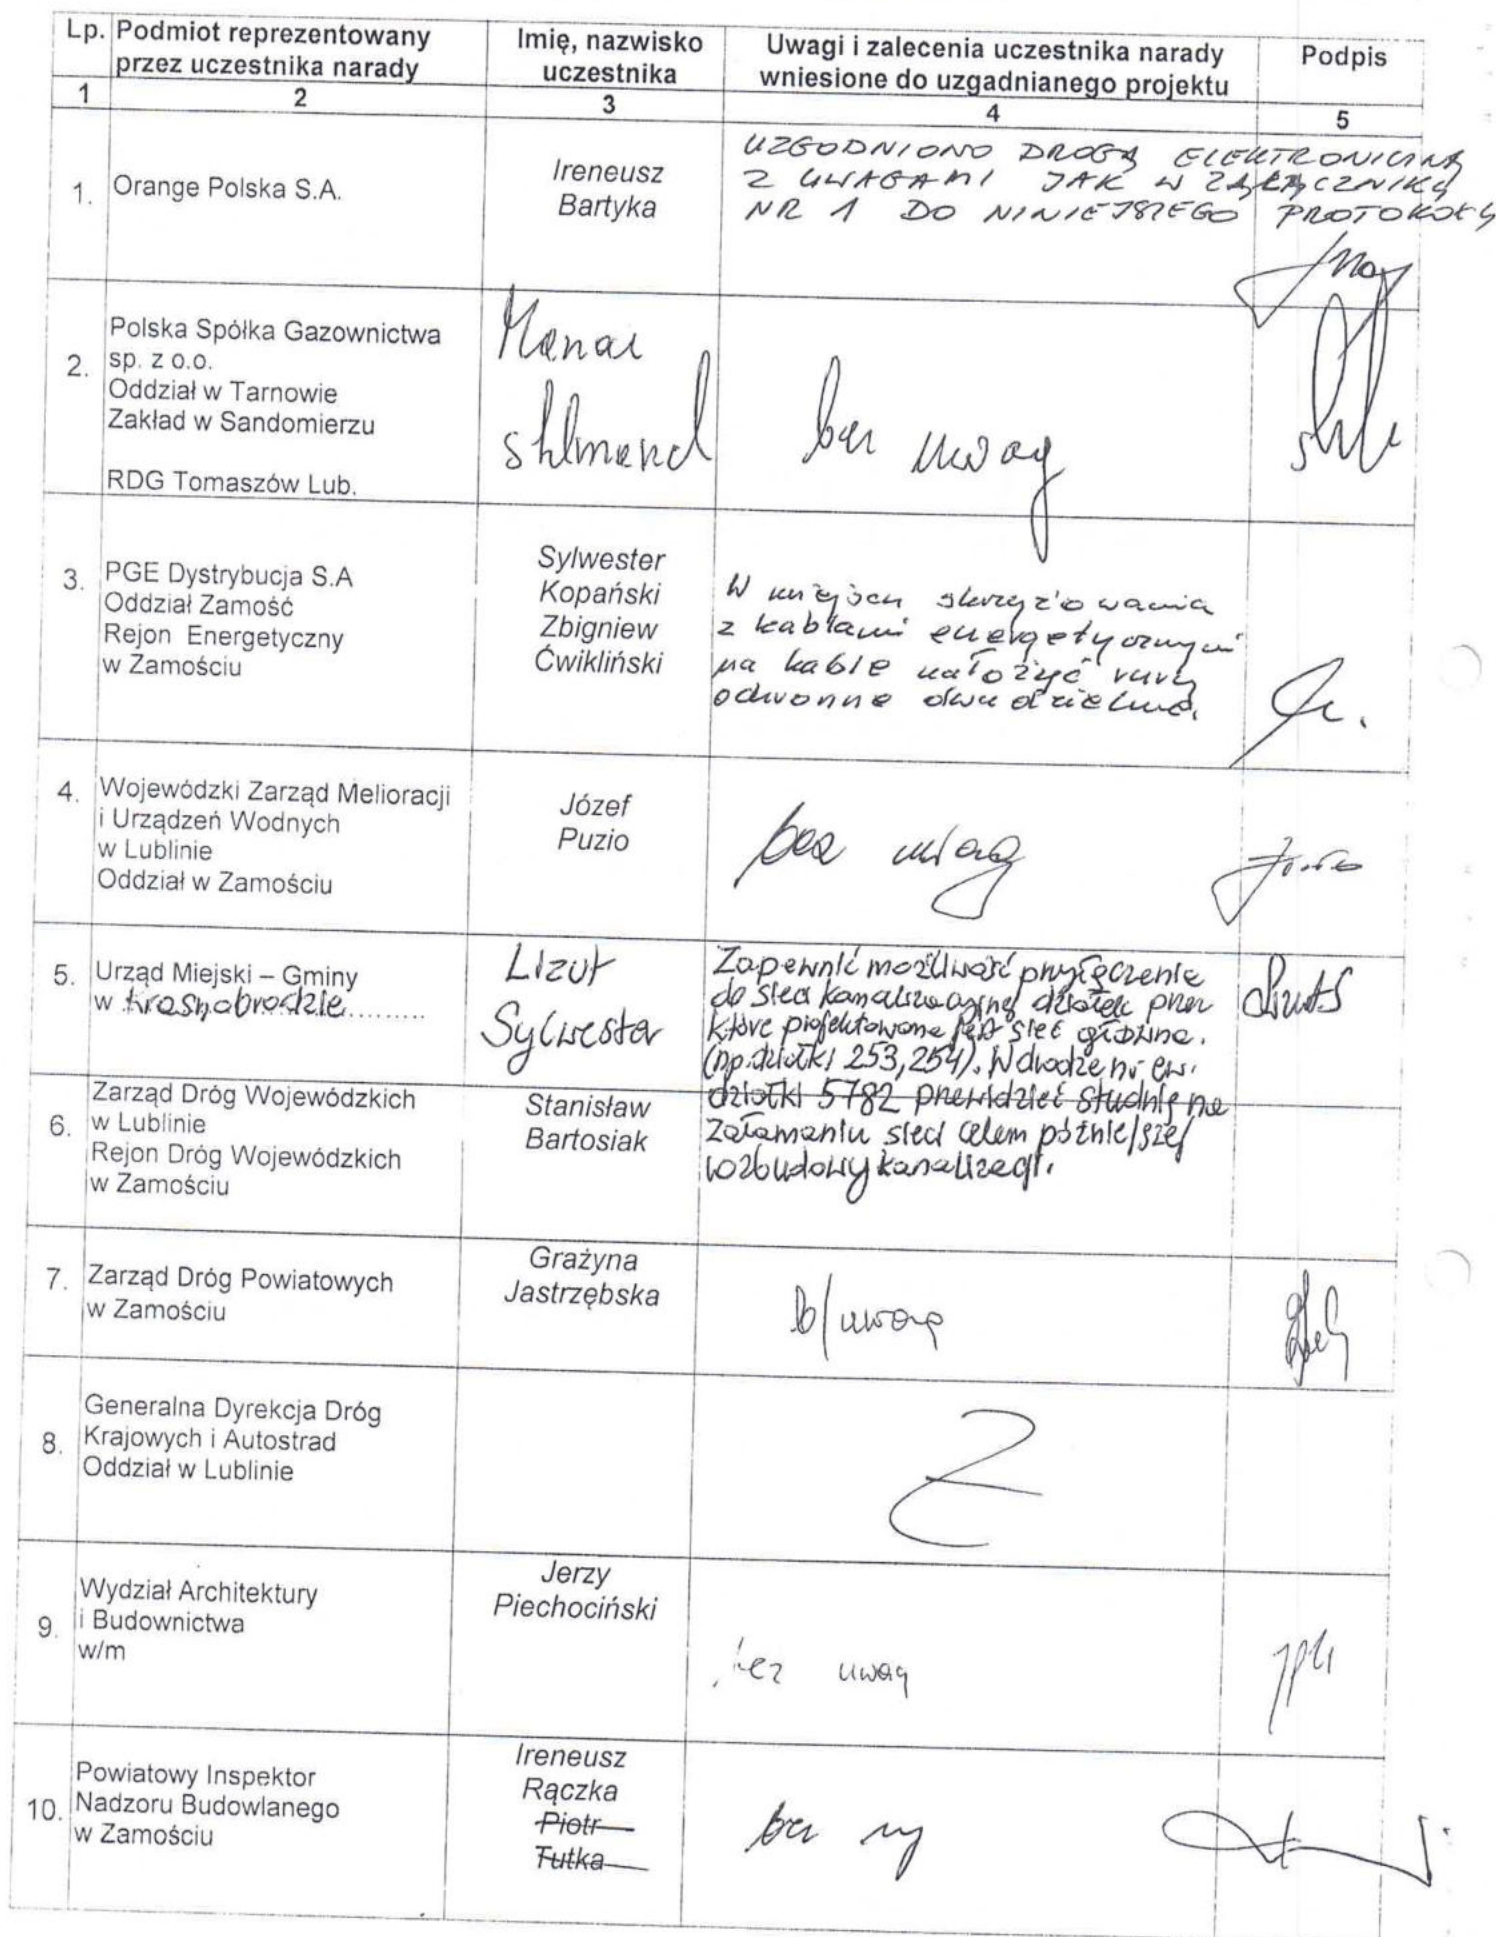 Lp. Podmiot reprezentowany przez uczestnika narady
Imię, nazwisko uczestnika
Uwagi i zalecenia uczestnika narady wniesione do uzgadnianego projektu
Podpis
1 2 3 4 5
1. Orange Polska S.A.
Ireneusz
Bartyka
UZGODNIONO DROGĄ ELEKTRONICZNĄ
Z UWAGAMI JAK W ZAŁĄCZNIKU
NR 1 DO NINIEJSZEGO PROTOKOŁU
2. Polska Spółka Gazownictwa
sp. z o.o.
Oddział w Tarnowie
Zakład w Sandomierzu
RDG Tomaszów Lub.
bez uwag
3. PGE Dystrybucja S.A
Oddział Zamość
Rejon Energetyczny
w Zamościu
Sylwester
Kopański
Zbigniew
Ćwikliński
W miejscu skrzyżowania
z kablami energetycznymi
na kable nałożyć rury
ochronne dwudzielne.
4. Wojewódzki Zarząd Melioracji
i Urządzeń Wodnych
w Lublinie
Oddział w Zamościu
Józef
Puzio
bez uwag
5. Urząd Miejski – Gminy
w Krasnobrodzie.........
Lizut
Sylwester
Zapewnić możliwość przyłączenia
do sieci kanalizacyjnej działek przez
które projektowana jest sieć główna.
(np. działki 253, 254). W drodze nr ew.
działki 5782 przewidzieć studnię na
załamaniu sieci celem późniejszej
rozbudowy kanalizacji.
6. Zarząd Dróg Wojewódzkich
w Lublinie
Rejon Dróg Wojewódzkich
w Zamościu
Stanisław
Bartosiak
7. Zarząd Dróg Powiatowych
w Zamościu
Grażyna
Jastrzębska
b/uwag
8. Generalna Dyrekcja Dróg
Krajowych i Autostrad
Oddział w Lublinie
9. Wydział Architektury
i Budownictwa
w/m
Jerzy
Piechociński
bez uwag
10. Powiatowy Inspektor
Nadzoru Budowlanego
w Zamościu
Ireneusz
Rączka
Piotr
Tutka
bez